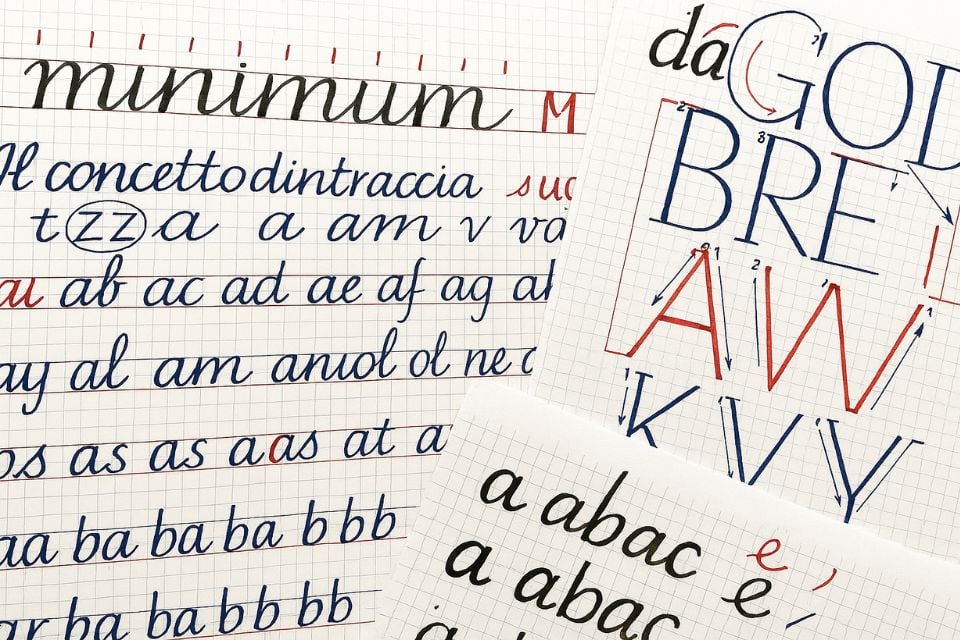 minimum M
Il concetto dintraccia
t zz a a am v va
au ab ac ad ae af ag
ay al am anuol ol ne
os as as aas at a
aa ba ba ba b bb
ar ba ba bb bb
da
GOD
BRE
AW
KVY
a abac e
a abac e